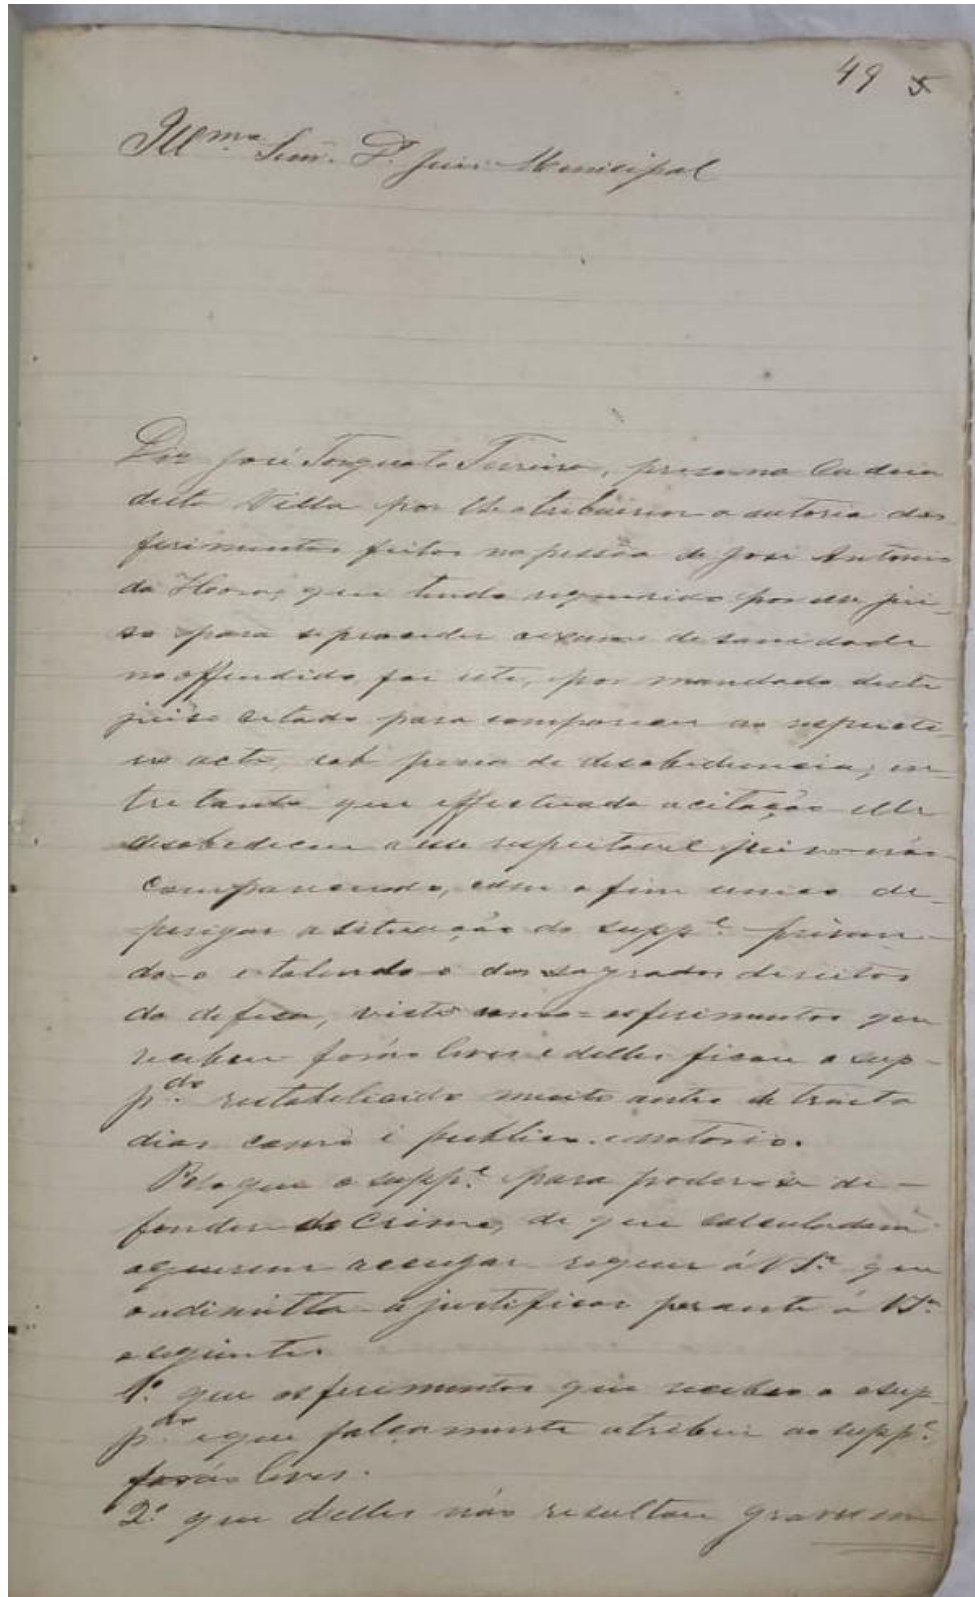 49 5
Ill.mo Senr. Dr. Juiz Municipal
Diz José Torquato Ferreira, preso na Cadeia
desta Villa por lhe atribuirem a autoria dos
ferimentos feitos na pessôa de José Antonio
da Hora, que tendo requerido por esse jui-
so para se proceder a exame de sanidade
no offendido, foi este, por mandado deste
juiso citado para comparecer ao respecti-
vo acto, sob pena de desobediencia; en-
tretanto que effectuada a citação elle
desobedeceu a esse respeitavel juiso não
comparecendo, com o fim unico de
perigar a situação do supp.e privan-
do-o e tolendo-o dos sagrados direitos
da defesa, visto como os ferimentos que
recebeu forão leves e delles ficou o sup-
p.do restabelicido muito antes de trinta
dias como é publico e notorio.
Pelo que o supp.e para poder-se de-
fender do crime, de que calculadam.
o querem accuzar requer á V S.a que
o adimitta a justificar perante á V S.a
o seguinte:
1.º que os ferimentos que recebeo o sup-
p.do e que falçamente atribue ao supp.e
forão leves.
2.º que delles não resultou grave in